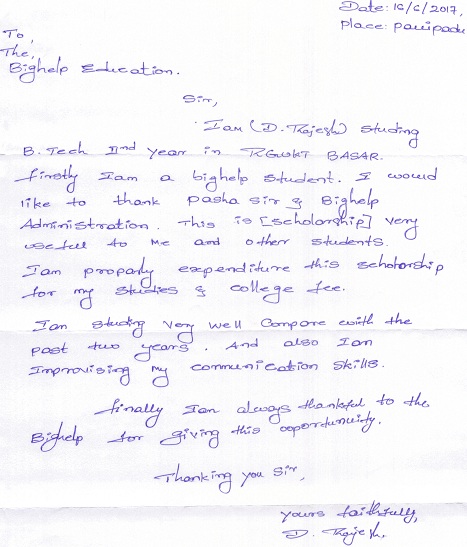 Date: 16/6/2017,
Place: pauipadu
To,
The,
Bighelp Education.
Sir,
Iam (D. Rajesh) studing
B. Tech IInd year in RGUKT BASAR.
firstly Iam a bighelp student. I would
like to thank pasha sir & Bighelp
Administration. This is [scholorship] very
usefull to me and other students.
Iam proparly expenditure this scholorship
for my studies & college fee.
Iam studing very well Compare with the
past two years. And also Iam
Improvising my communication skills.
finally Iam always thankful to the
Bighelp for giving this opportunity.
Thanking you sir,
yours faithfully,
D. Rajesh.